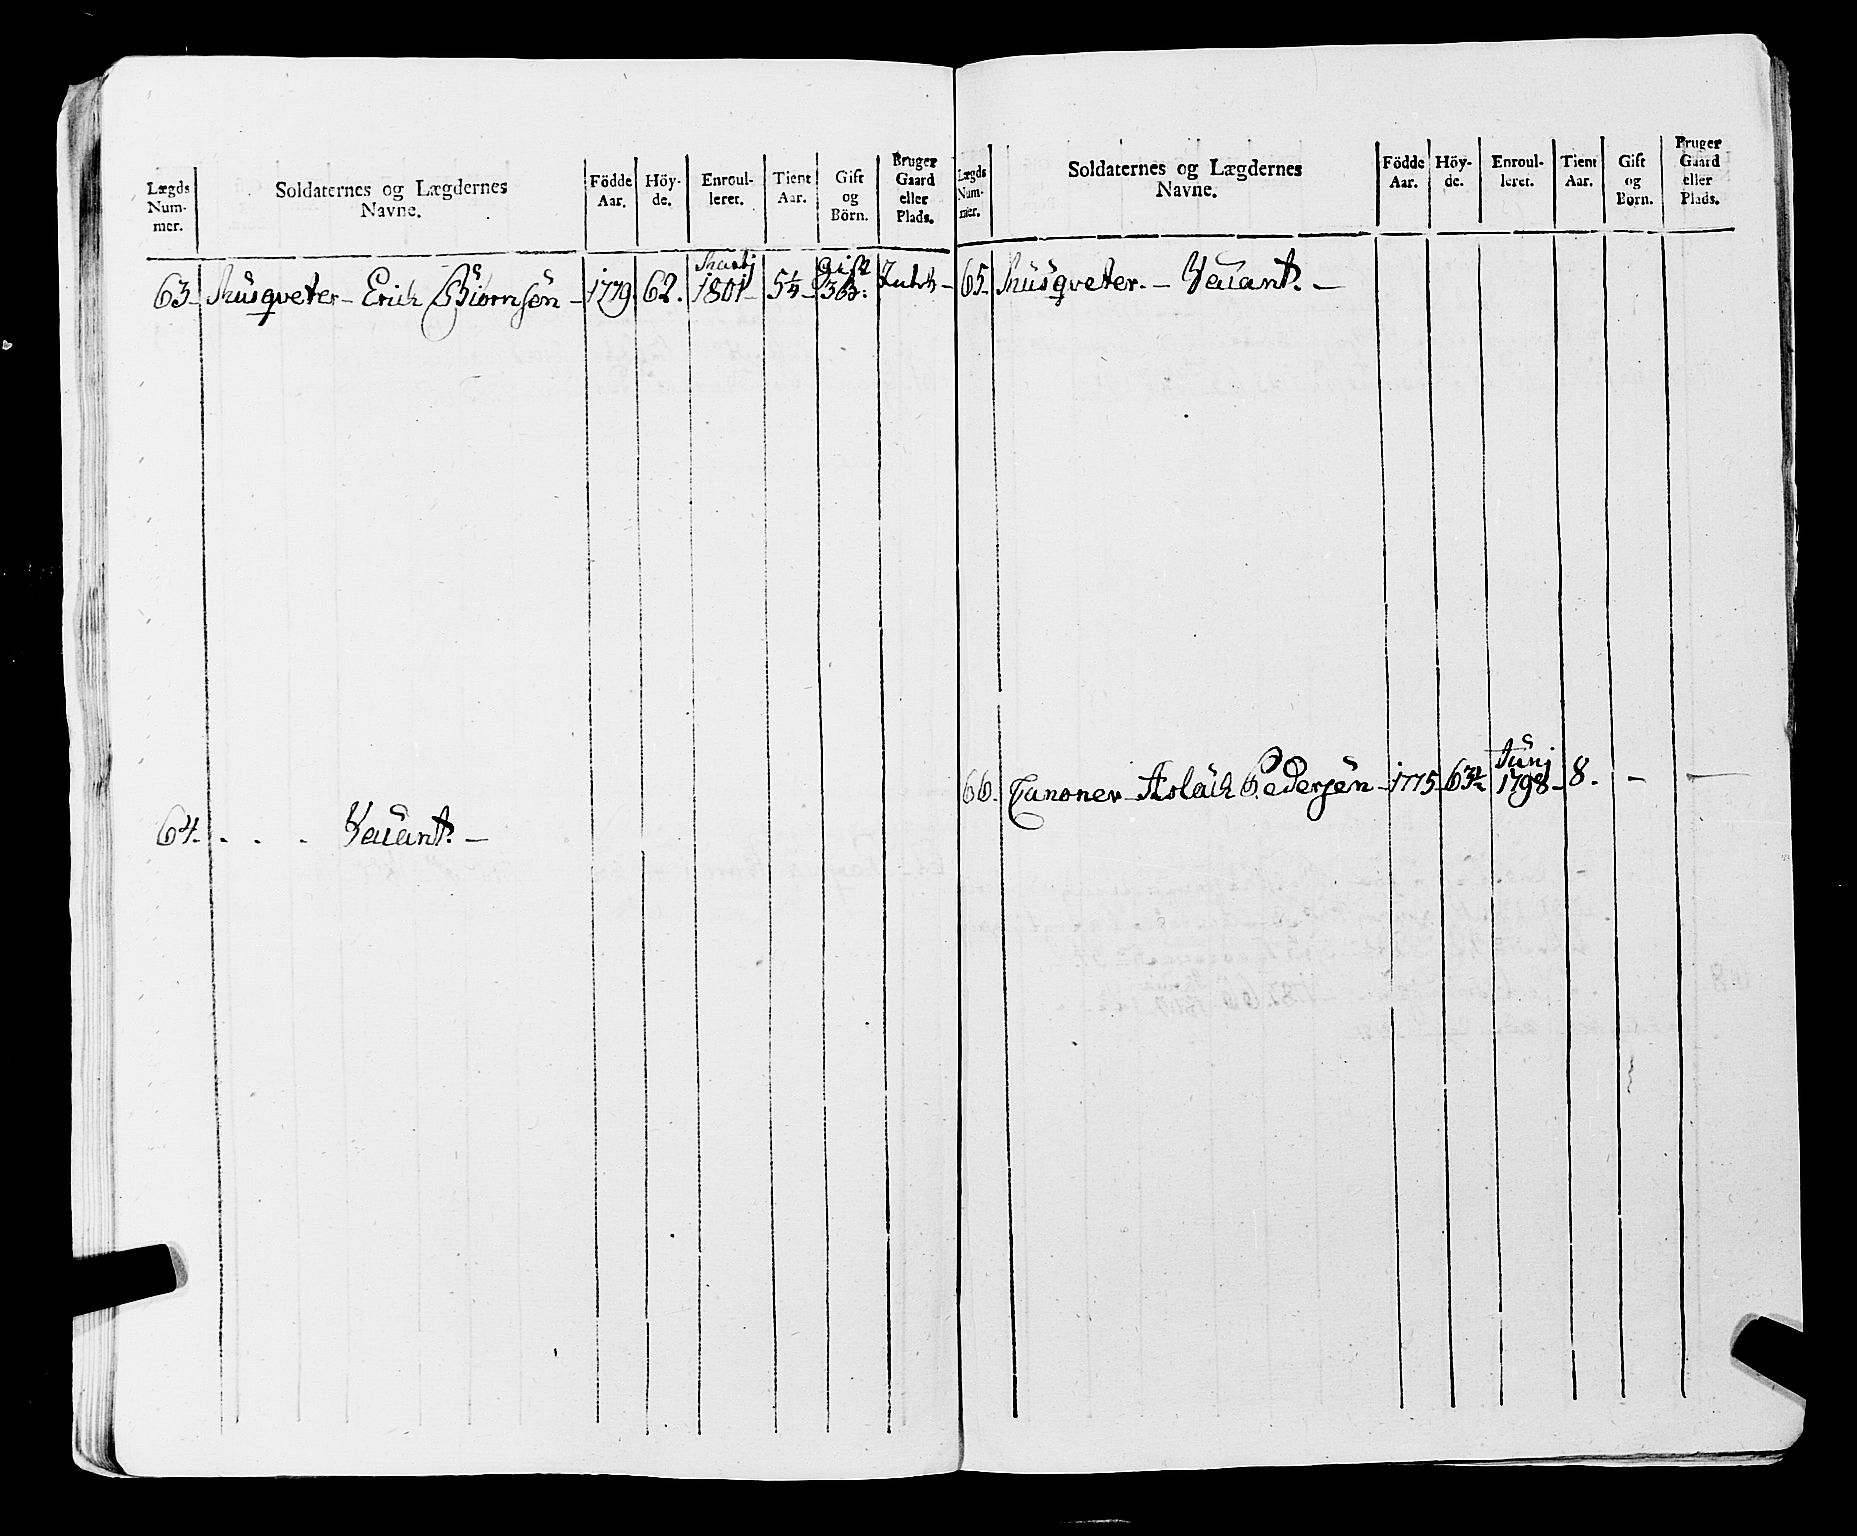 Lægds Num- mer. Soldaternes og Lægdernes Navne. Födde Aar. Höy- de. Enroul- leret. Tient Aar. Gift og Börn. Bruger Gaard eller Plads.
Martj Gift
63. Musqveter – Erich Biörnsen – 1779. 62. 1801 – 5¼ – 3 b:
64. . . . Vacant. –
Lægds Num- mer. Soldaternes og Lægdernes Navne. Födde Aar. Höy- de. Enroul- leret. Tient Aar. Gift og Børn. Bruger Gaard eller Plads.
65. Musqveter. – Vacant. –
Junj
66. Canoner – Aslach Pedersen – 1775 – 63¼ 1798 – 8. – –